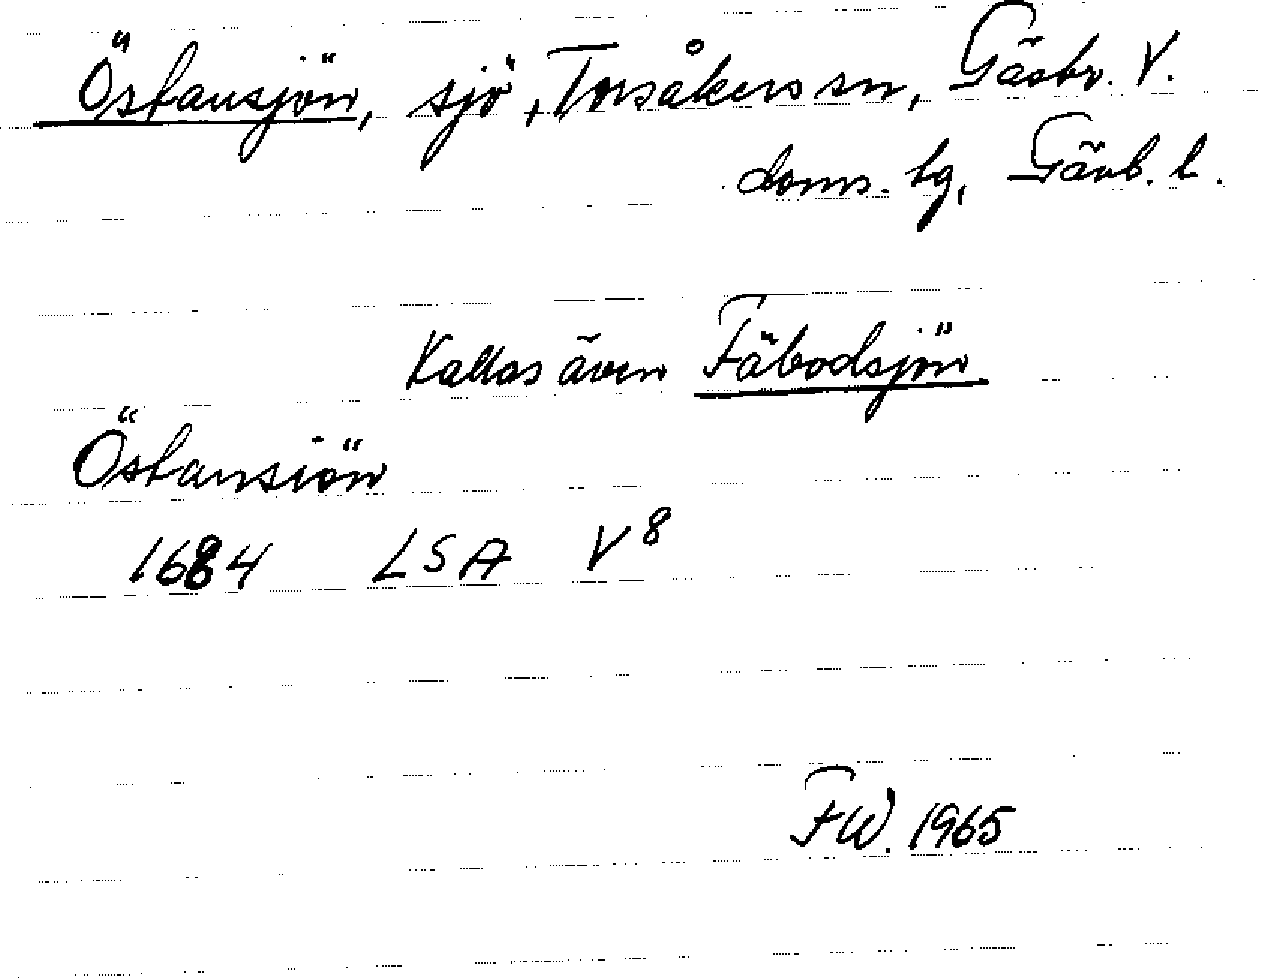 Östansjön, sjö, Torsåkers sn, Gästr. V.
doms. lg, Gävb. l.
Kallas även Fäbodsjön
Östansiön
1684 LSA V8
FW. 1965